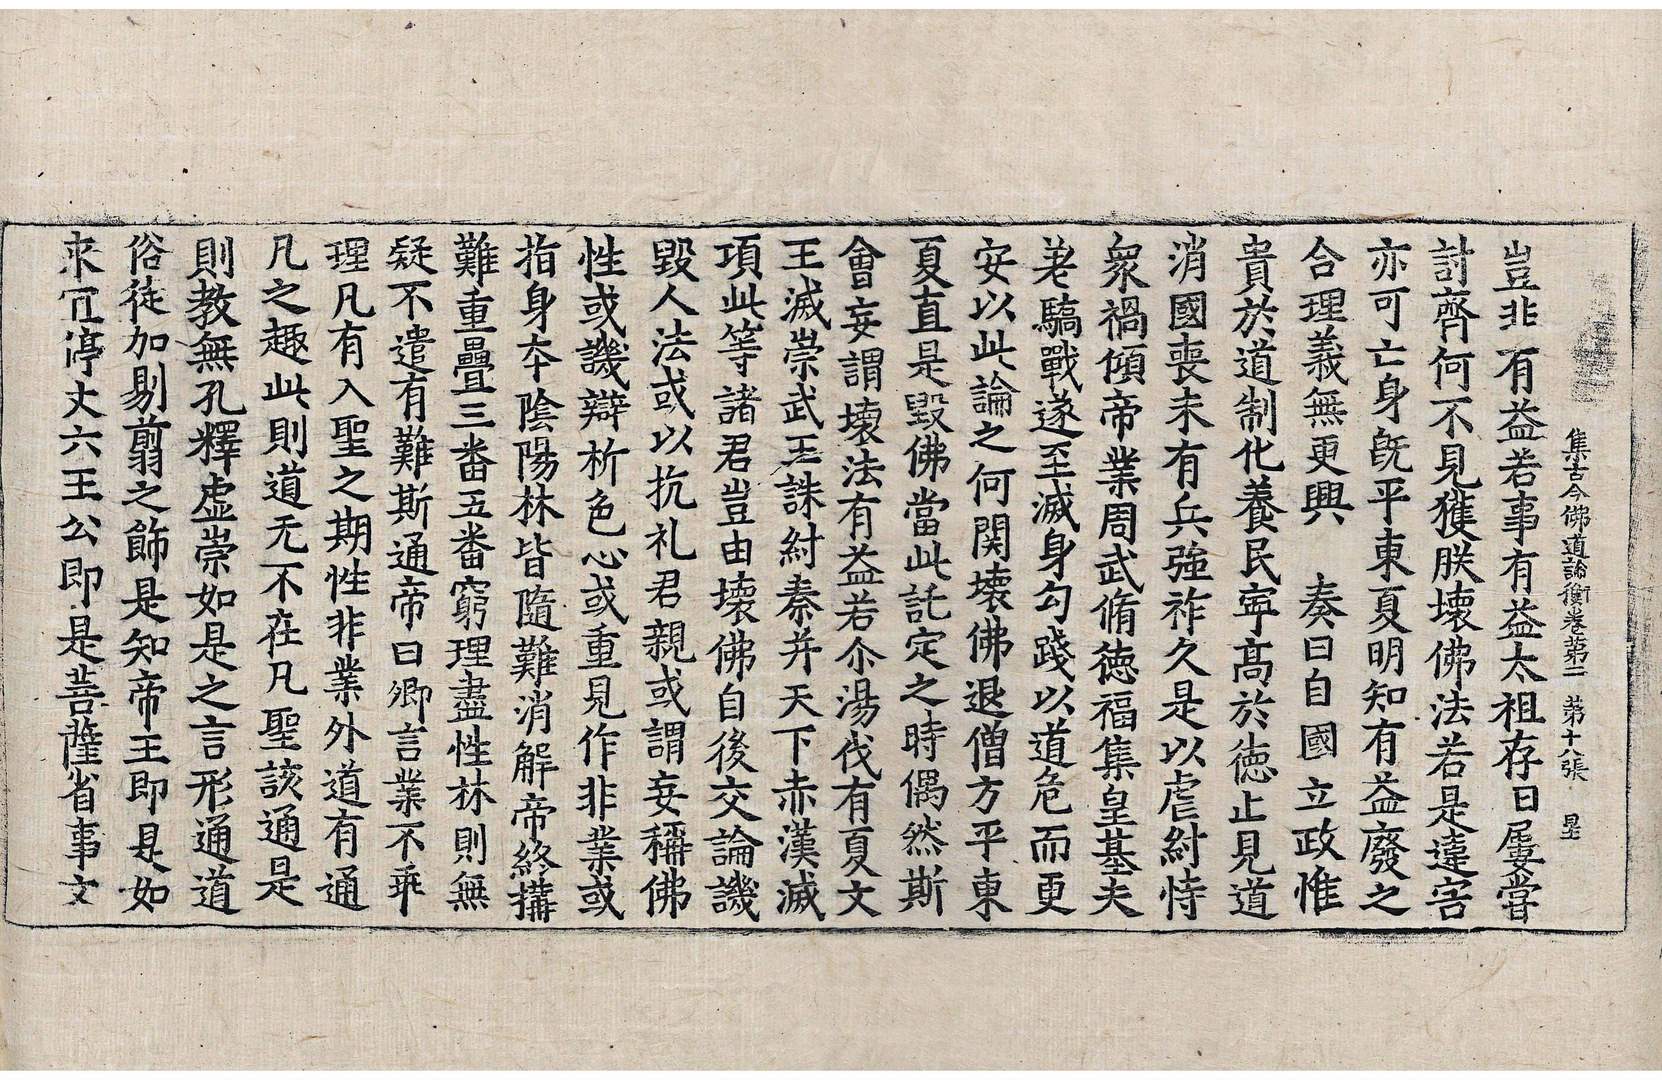 集古今佛道論衡卷第二　第十八張
豈非有益若事有益太祖存日屢嘗
討齊何不見獲朕壞佛法若是違害
亦可亡身旣平東夏明知有益廢之
合理義無更興　奏曰自國立政惟
貴於道制化養民寧高於德止見道
消國喪未有兵強祚久是以虐紂恃
衆禍傾帝業周武脩德福集皇基夫
差驕戰遂至滅身勾踐以道危而更
安以此論之何関壞佛退僧方平東
夏直是毀佛當此託定之時偶然斯
會妄謂壞法有益若尒湯伐有夏文
王滅崇武王誅紂秦并天下赤漢滅
項此等諸君豈由壞佛自後交論譏
毀人法或以抗礼君親或謂妄稱佛
性或譏辯析色心或重見作非業或
指身本陰陽林皆隨難消解帝終搆
難重疊三番五番窮理盡性林則無
疑不遣有難斯通帝曰卿言業不乖
理凡有入聖之期性非業外道有通
凡之趣此則道无不在凡聖該通是
則教無孔釋虛崇如是之言形通道
俗徒加剔翦之飾是知帝王即是如
来冝停丈六王公即是菩薩省事文